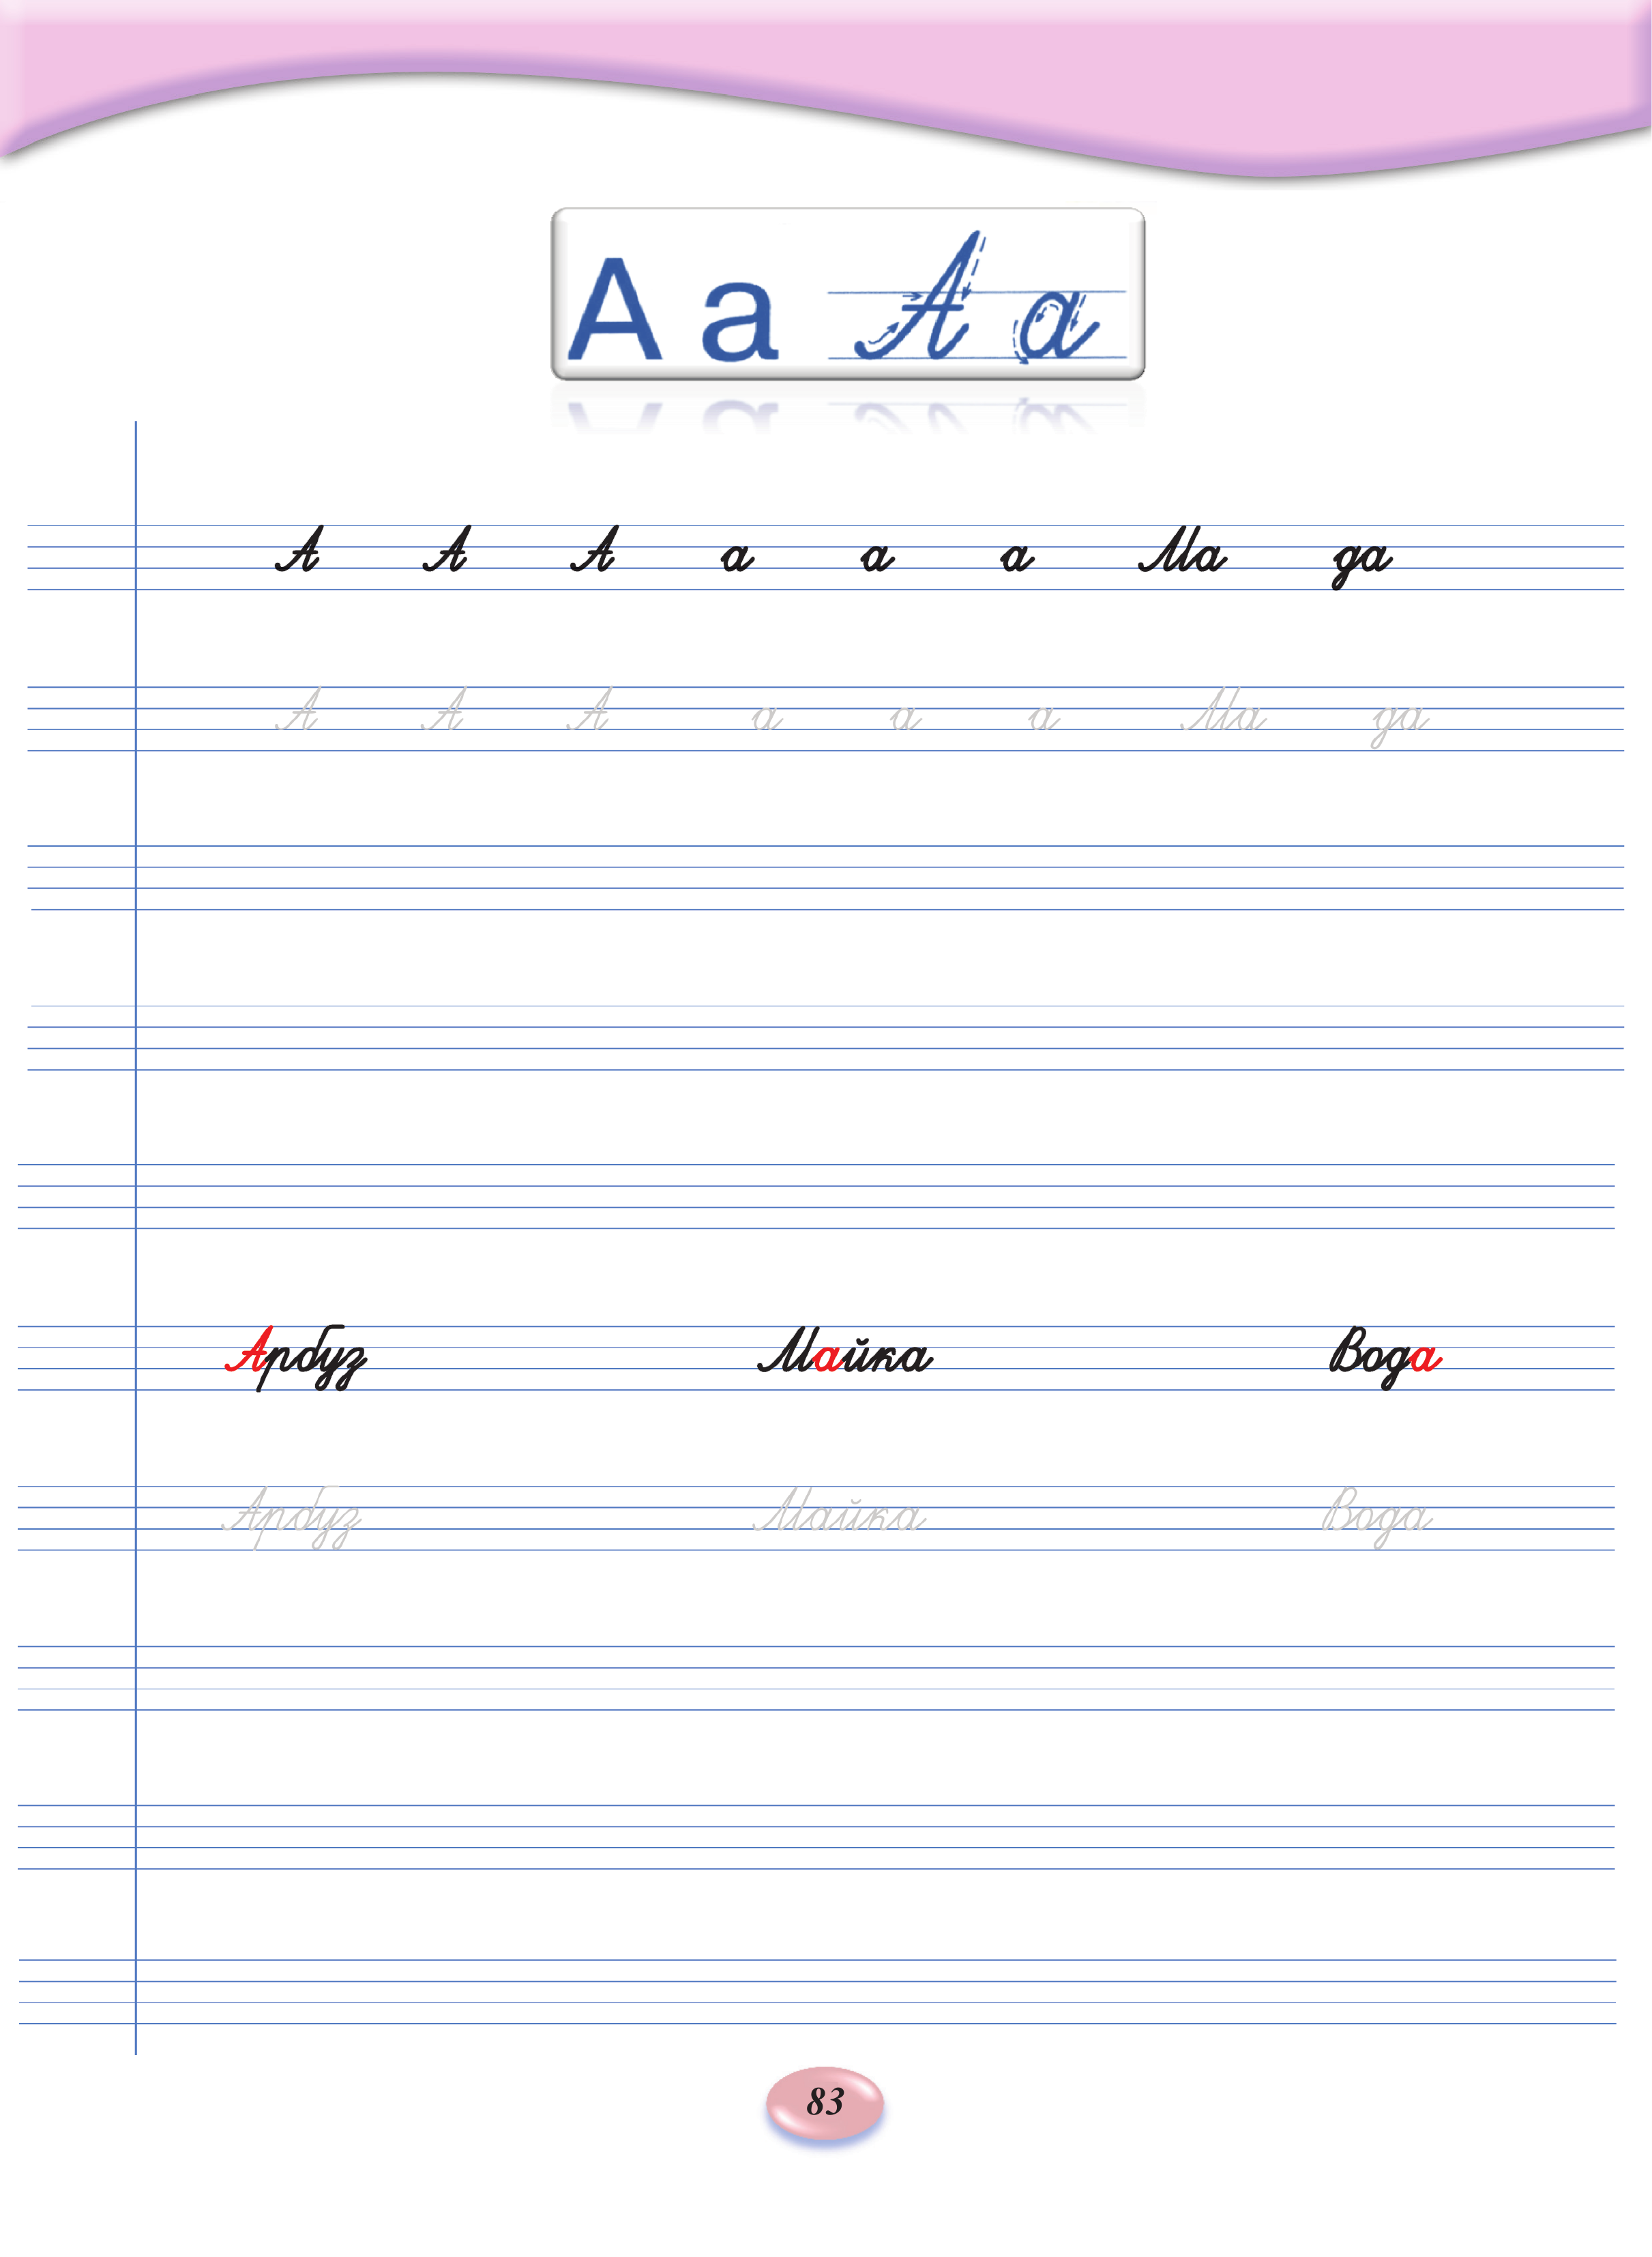 А а А а
А А А а а а Ма да
А А А а а а Ма да
Арбуз Майка Вода
Арбуз Майка Вода
83